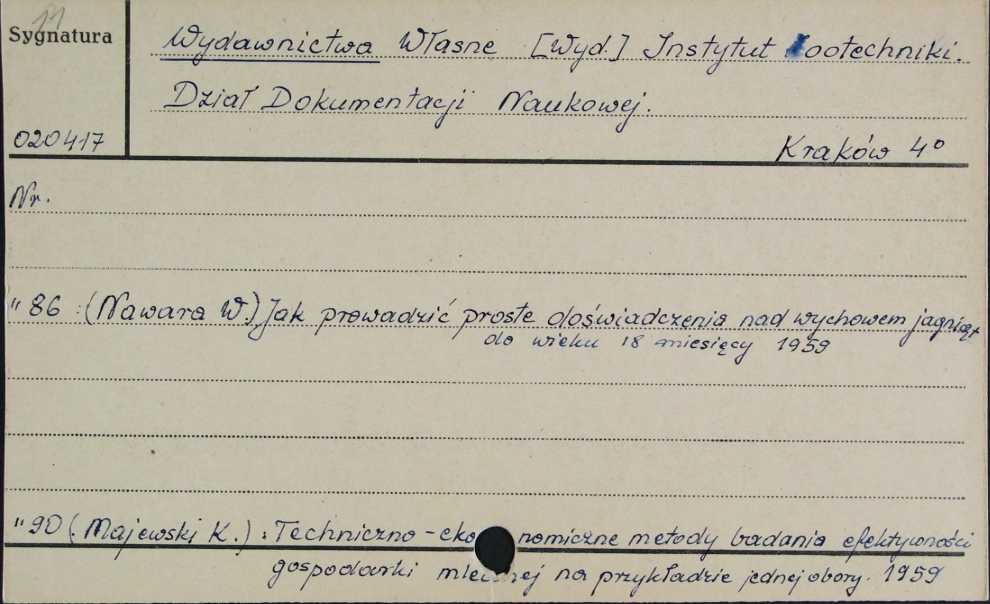 11
Sygnatura
Wydawnictwa Własne [Wyd.] Instytut Zootechniki.
Dział Dokumentacji Naukowej.
020417
Kraków 4°
Nr.
" 86 : (Nawara W.) Jak prowadzić proste doświadczenia nad wychowem jagniąt
do wieku 18 miesięcy 1959
" 90 (Majewski K.) : Techniczno-ekonomiczne metody badania efektywności
gospodarki mlecznej na przykładzie jednej obory. 1959